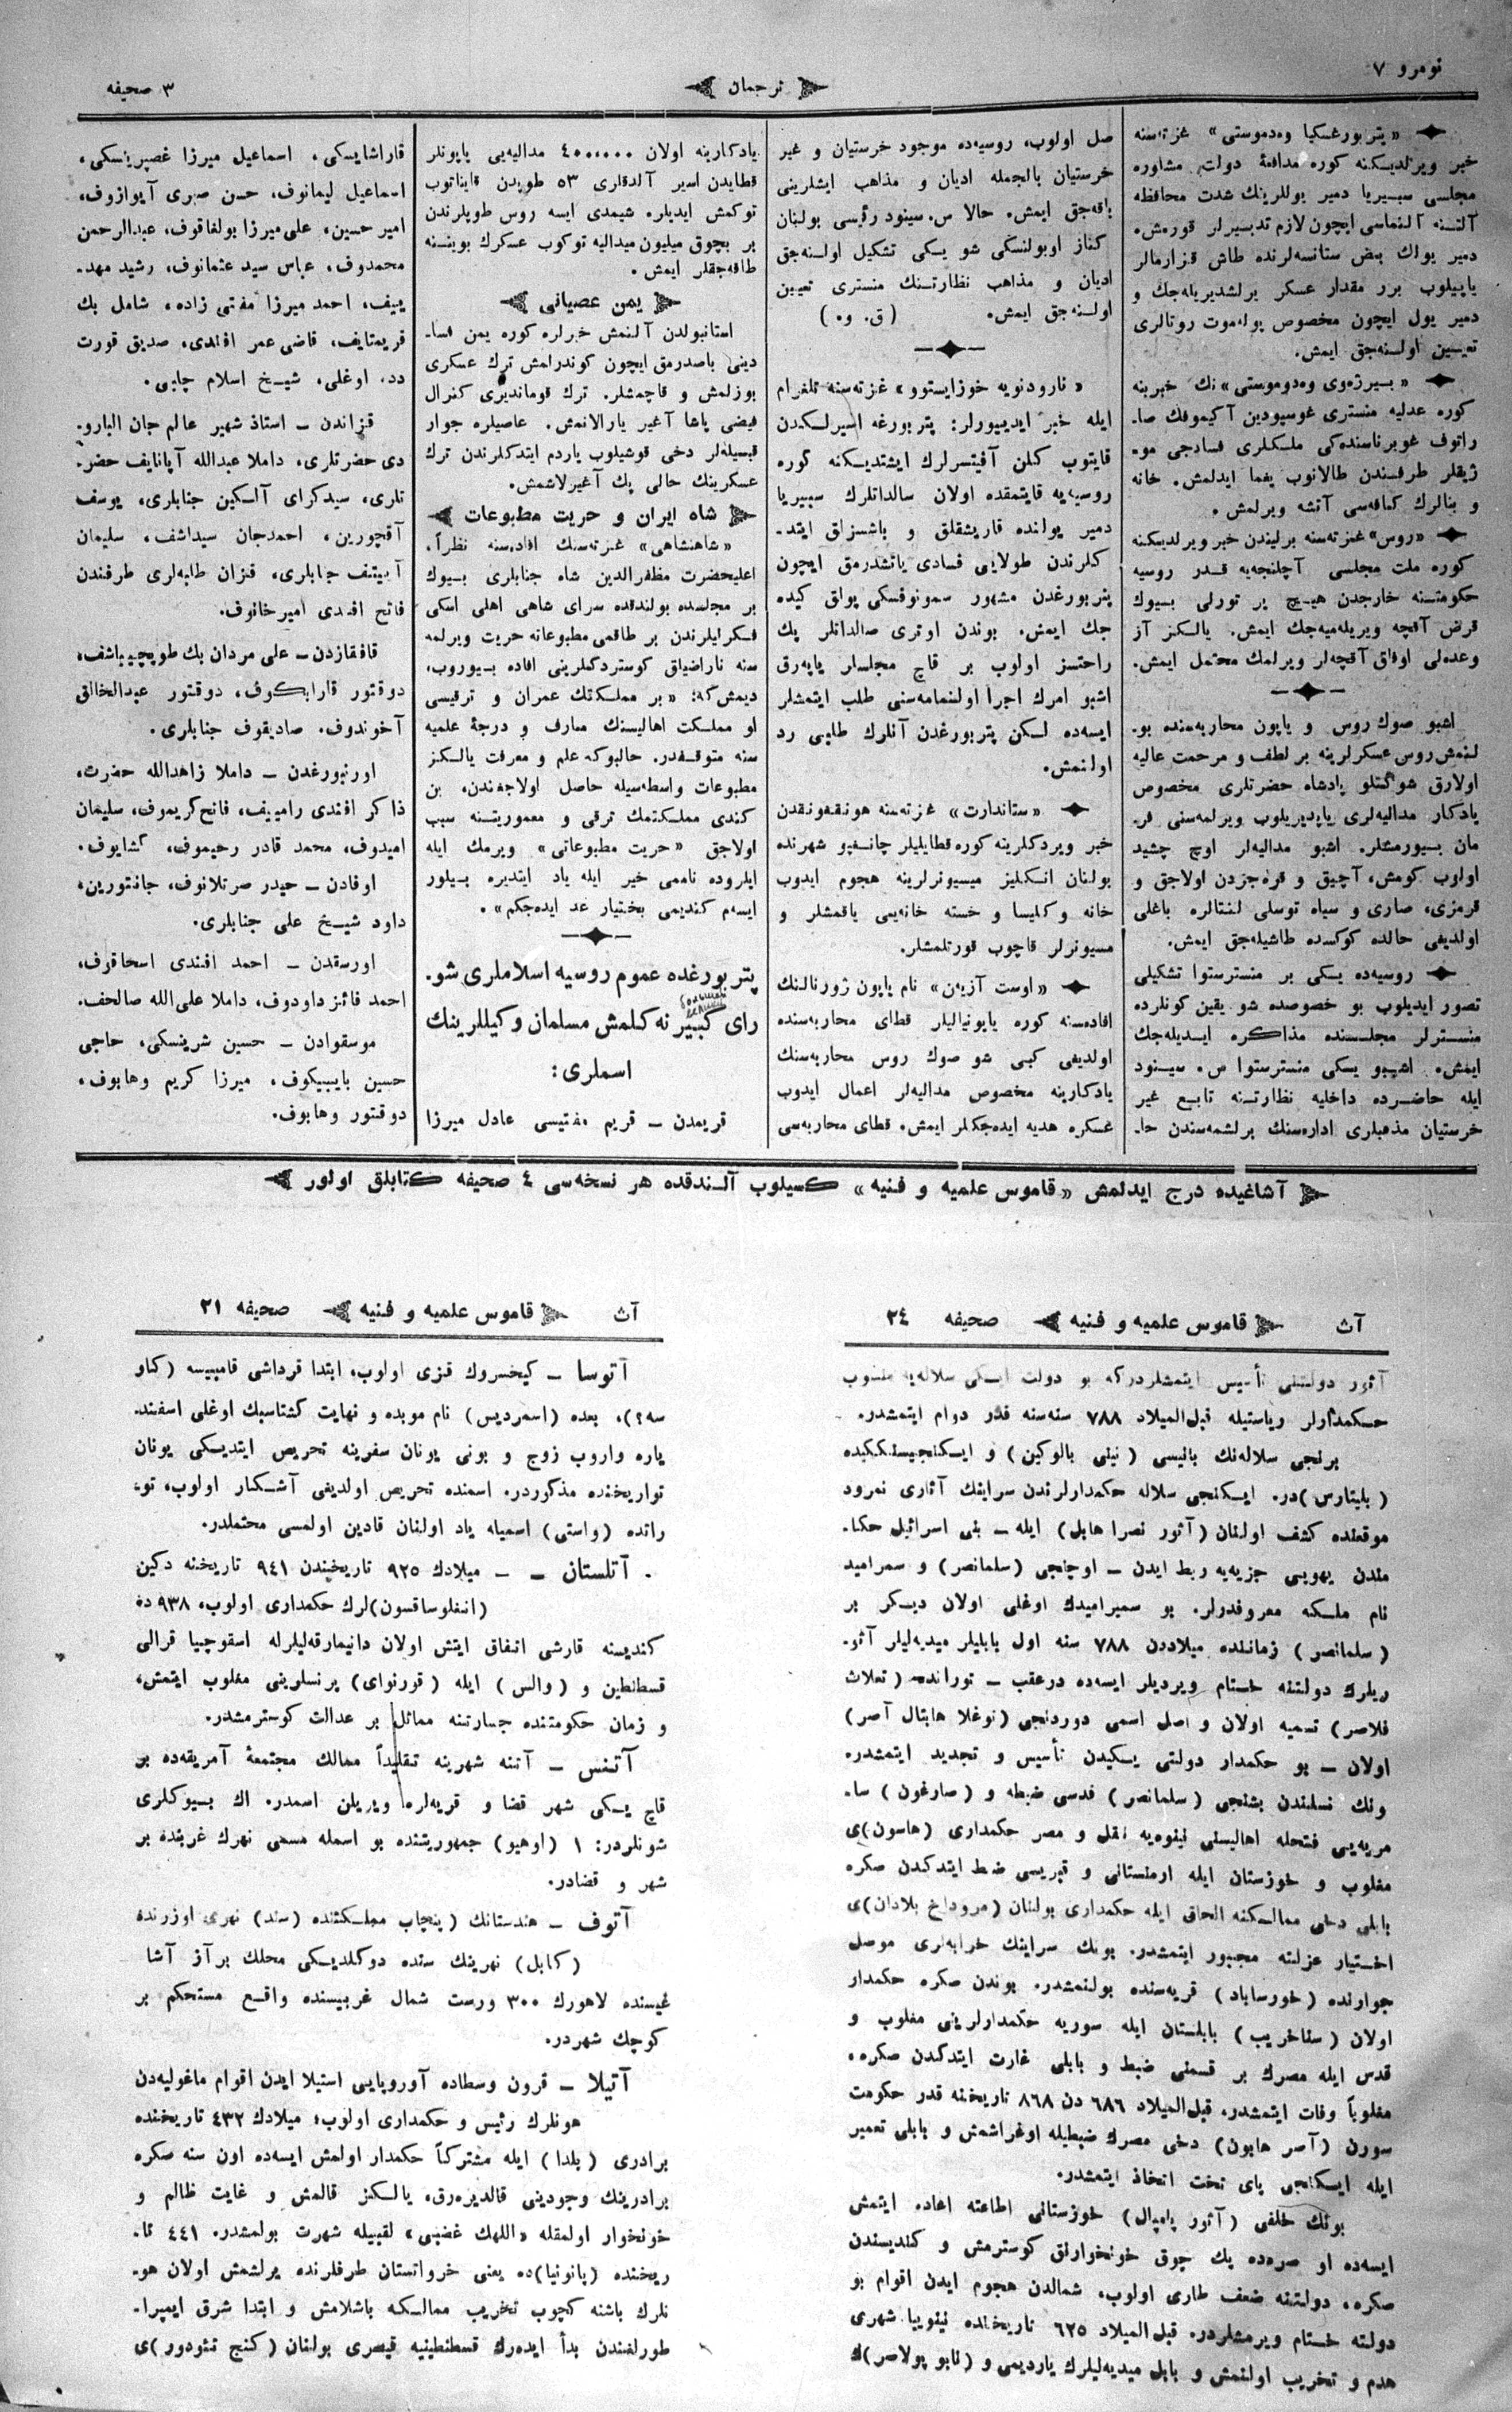 نومرو ٧
ترجمان
٣ صحیفه
«پتربورغسکیا وەدموستی» غزتەسنه
خبر ویرلدیکنه کوره مدافعهٔ دولت مشاوره
مجلسی سیبریا دمیر یوللرینك شدت محافظه
آلتنه آلنماسی ایچون لازم تدبیرلر قورمش.
دمیر یولك بعض ستانسەلرنده طاش قزارمالر
یاپیلوب برر مقدار عسکر یرلشدیریلەجك و
دمیر یول ایچون مخصوص پولەموت روتالری
تعیین اولنەجق ایمش.
«بیرژەوی وەدوموستی» نك خبرینه
کوره عدلیه منستری غوسپودین آکیموفك صا-
راتوف غوبرناسندەکی ملكلری فسادجی مو-
ژیقلر طرفندن طالانوب یغما ایدلمش. خانه
و بنالرك کافەسی آتشه ویرلمش.
«روس» غزتەسنه برلیندن خبر ویرلدیکنه
کوره ملت مجلسی آچلنجەیه قدر روسیه
حکومتنه خارجدن هیچ بر تورلی بیوك
قرض آقچه ویریلەمیەجك ایمش. یالکز آز
وعدەلی اوفاق آقچەلر ویرلمك محتمل ایمش.
اشبو صوك روس و یاپون محاربەسنده بو-
لنمش روس عسکرلرینه بر لطف و مرحمت عالیه
اولارق شوکتلو پادشاه حضرتلری مخصوص
یادکار مدالیەلری یاپدیریلوب ویرلمەسنی فر-
مان بیورمشلر. اشبو مدالیەلر اوچ چشید
اولوب کومش، آچیق و قرەجزدن اولاجق و
قرمزی، صاری و سیاه توسلی لنتالره باغلی
اولدیغی حالده کوکسده طاشیلەجق ایمش.
روسیەده یکی بر منسترستوا تشکیلی
تصور ایدیلوب بو خصوصده شو یقین کونلرده
منسترلر مجلسنده مذاکره ایدیلەجك
ایمش. اشبو یکی منسترستوا س. سینود
ایله حاضرده داخلیه نظارتنه تابع غیر
خرستیان مذهبلری ادارەسنك برلشمەسندن حا-
صل اولوب، روسیەده موجود خرستیان و غیر
خرستیان بالجمله ادیان و مذاهب ایشلرینی
باقەجق ایمش. حالا س. سینود رئیسی بولنان
کناز اوبولنسکی شو یکی تشکیل اولنەجق
ادیان و مذاهب نظارتنك منستری تعیین
اولنەجق ایمش. (ق. و.)
«نارودنویه خوزایستوو» غزتەسنه تلغرام
ایله خبر ایدییورلر: پتربورغه اسیرلکدن
قایتوب کلن آفیتسرلرك ایشتدیکنه کوره
روسیەیه قایتمقده اولان سالداتلرك سیبریا
دمیر یولنده قاریشقلق و باشسزلق ایتد-
کلرندن طولایی فسادی یاتشدرمق ایچون
پتربورغدن مشهور سمونوفسکی پولق کیده
جك ایمش. بوندن اوتری صالداتلر پك
راحتسز اولوب بر قاچ مجلسلر یاپەرق
اشبو امرك اجرا اولنمامەسنی طلب ایتمشلر
ایسەده لسکن پتربورغدن آنلرك طلبی رد
اولنمش.
«ستاندارت» غزتەسنه هونقغونقدن
خبر ویردکلرینه کوره قطایلیلر چانغپو شهرنده
بولنان انکلیز میسیونرلرینه هجوم ایدوب
خانه و کلیسا و خسته خانەیی یاقمشلر و
مسیونرلر قاچوب قورتلمشلر.
«اوست آزیەن» نام یاپون ژورنالنك
افادەسنه کوره یاپونیالیلر قطای محاربەسنده
اولدیغی کبی شو صوك روس محاربەسنك
یادکارینه مخصوص مدالیەلر اعمال ایدوب
عسکره هدیه ایدەجکلر ایمش. قطای محاربەسی
یادکارینه اولان ٤٠٠،٠٠٠ مدالیەیی یاپونلر
قطایدن اسیر آلدقلری ٥٣ طوپدن قایناتوب
توکمش ایدیلر. شیمدی ایسه روس طوپلرندن
بر بچوق میلیون میدالیه توکوب عسکرك بوینسنه
طاقەجقلر ایمش.
یمن عصیانی
استانبولدن آلنمش خبرلره کوره یمن فسا-
دینی باصدرمق ایچون کوندرلمش ترك عسکری
بوزلمش و قاچمشلر. ترك قوماندیری کنرال
فیضی پاشا آغیر یارالانمش. عاصیلره جوار
قبیلەلر دخی قوشیلوب یاردم ایتدکلرندن ترك
عسکرینك حالی پك آغیرلاشمش.
شاه ایران و حریت مطبوعات
«شاهنشاهی» غزتەسنك افادەسنه نظراً،
اعلیحضرت مظفرالدین شاه جنابلری بیوك
بر مجلسده بولندقده سرای شاهی اهلی اسکی
فکرلیلرندن بر طاقمی مطبوعاته حریت ویرلمه
سنه ناراضیاق کوستردکلرینی افاده بیوروب،
دیمش که: «بر مملکتك عمران و ترقیسی
او مملکت اهالیسنك معارف و درجهٔ علمیه
سنه متوقفدر. حالبوکه علم و معرفت یالکز
مطبوعات واسطەسیله حاصل اولاجغندن، بن
کندی مملکتمك ترقی و معموریتنه سبب
اولاجق «حریت مطبوعاتی» ویرمك ایله
ایلروده ناممی خیر ایله یاد ایتدیره بیلور
ایسەم کندیمی بختیار عد ایدەجکم».
پتربورغده عموم روسیه اسلاملری شو-
رای کبیرنه کلمش مسلمان وکیللرینك
اسملری:
قریمدن ــ قریم مفتیسی عادل میرزا
قاراشایسکی، اسماعیل میرزا غصپرینسکی،
اسماعیل لیمانوف، حسن صبری آیوازوف،
امیر حسین، علی میرزا بولغاقوف، عبدالرحمن
محمدوف، عباس سید عثمانوف، رشید مهد-
ییف، احمد میرزا مفتی زاده، شامل بك
قریمتایف، قاضی عمر افندی، صدیق قورت
دده اوغلی، شیخ اسلام چلبی.
قزاندن ــ استاذ شهیر عالم جان البارو-
دی حضرتلری، داملا عبدالله آپانایف حضر-
تلری، سیدکرای آلکین جنابلری، یوسف
آقچورین، احمدجان سیداشف، سلیمان
آییتف جنابلری، قزان طلبەلری طرفندن
فاتح افندی امیرخانوف.
قافقازدن ــ علی مردان بك طوپچیباشف،
دوقتور قارابکوف، دوقتور عبدالخالق
آخوندوف، صادیقوف جنابلری.
اورنبورغدن ــ داملا زاهدالله حضرت،
ذاکر افندی رامییف، فاتح کریموف، سلیمان
امیدوف، محمد قادر رحیموف، کشایوف.
اوفادن ــ حیدر صرتلانوف، جانتورین،
داود شیخ علی جنابلری.
اورسقدن ــ احمد افندی اسحاقوف،
احمد فائز داودوف، داملا علی الله صالحف.
موسقوادن ــ حسین شرینسکی، حاجی
حسین بایبیکوف، میرزا کریم وهابوف،
دوقتور وهابوف.
آشاغیده درج ایدلمش «قاموس علمیه و فنیه» کسیلوب آلندقده هر نسخەسی ٤ صحیفه کتابلق اولور
آث
قاموس علمیه و فنیه
صحیفه ٢٤
آثور دولتنی تأسیس ایتمشلردرکه بو دولت ایکی سلالەیه منسوب
حکمدارلر ریاستیله قبل المیلاد ٧٨٨ سنەسنه قدر دوام ایتمشدر.
برنجی سلالەنك بانیسی (نینی بالوکین) و ایکنجیسنککیده
(بلیتارس)در. ایکنجی سلاله حکمدارلرندن سراینك آثاری نمرود
موقعنده کشف اولنان (آثور نصرا هابل) ایله ــ بنی اسرائیل حکا-
مندن یهویی جزیەیه ربط ایدن ــ اوچنجی (سلمانصر) و سمرامید
نام ملکه معروفدرلر. بو سمیرامیدك اوغلی اولان دیکر بر
(سلمانصر) زماننده میلاددن ٧٨٨ سنه اول بابلیلر میدیەلیلر آثو-
ریلرك دولتنه ختام ویردیلر ایسەده درعقب ــ توراتده (تغلاث
فلاصر) تسمیه اولان و اصل اسمی دوردنجی (توغلا هابتال آصر)
اولان ــ بو حکمدار دولتی یکیدن تأسیس و تجدید ایتمشدر.
ونك نسلندن بشنجی (سلمانصر) قدسی ضبطه و (صارغون) سا-
مریەیی فتحله اهالیسنی نینوەیه نقل و مصر حکمداری (هاسون)ی
مغلوب و خوزستان ایله ارمنستانی و قبریسی ضبط ایتدکدن صکره
بابلی دخی ممالکنه الحاق ایله حکمداری بولنان (مروداخ بلادان)ی
اختیار عزلته مجبور ایتمشدر. بونك سراینك خرابەلری موصل
جوارنده (خورساباد) قریەسنده بولنمشدر. بوندن صکره حکمدار
اولان (سناخریب) بابلستان ایله سوریه حکمدارلرینی مغلوب و
قدس ایله مصرك بر قسمنی ضبط و بابلی غارت ایتدکدن صکره،
مغلوباً وفات ایتمشدر. قبل المیلاد ٦٨٦ دن ٨٦٨ تاریخنه قدر حکومت
سورن (آصر هابون) دخی مصرك ضبطیله اوغراشمش و بابلی تعمیر
ایله ایکنجی پای تخت اتخاذ ایتمشدر.
بونك خلفی (آثور پامپال) خوزستانی اطاعته اعاده ایتمش
ایسەده او صرەده پك چوق خونخوارلق کوسترمش و کندیسندن
صکره، دولتنه ضعف طاری اولوب، شمالدن هجوم ایدن اقوام بو
دولته ختام ویرمشلردر. قبل المیلاد ٦٢٥ تاریخنده نینوییا شهری
هدم و تخریب اولنمش و بابل میدیەلیلرك یاردیمی و (نابو پولاصر)ك
آث
قاموس علمیه و فنیه
صحیفه ٢١
آتوسا ــ کیخسروك قزی اولوب، ابتدا قرداشی قامبیسه (کاو
سه؟)، بعده (اسمردیس) نام موبده و نهایت کشتاسبك اوغلی اسفند-
یاره واروب زوج و بونی یونان سفرینه تحریص ایتدیکی یونان
تواریخنده مذکوردر. اسمنده تحریص اولدیغی آشکار اولوب، تو-
راتده (واستی) اسمیله یاد اولنان قادین اولمسی محتملدر.
آتلستان ــ میلادك ٩٢٥ تاریخندن ٩٤١ تاریخنه دکین
(انغلوساقسون)لرك حکمداری اولوب، ٩٣٨ ده
کندیسنه قارشی اتفاق ایتش اولان دانیمارقەلیلرله اسقوچیا قرالی
قسطنطین و (والس) ایله (قورنوای) پرنسلرینی مغلوب ایتمش،
و زمان حکومتنده جسارتنه مماثل بر عدالت کوسترمشدر.
آتنس ــ آتنه شهرینه تقلیداً ممالك مجتمعهٔ آمریقەده بر
قاچ یکی شهر قضا و قریەلره ویریلن اسمدر. اك بیوکلری
شونلردر: ١ (اوهیو) جمهوریتنده بو اسمله مسمی نهرك غربنده بر
شهر و قضادر.
آتوف ــ هندستانك (پنجاب مملکتنده (سند) نهری اوزرنده
(کابل) نهرینك سنده دوکلدیکی محلك برآز آشا
غیسنده لاهورك ٣٠٠ ورست شمال غربیسنده واقع مستحکم بر
کوچك شهردر.
آتیلا ــ قرون وسطاده آوروپایی استیلا ایدن اقوام ماغولیەدن
هونلرك رئیس و حکمداری اولوب؛ میلادك ٤٣٢ تاریخنده
برادری (بلدا) ایله مشترکاً حکمدار اولمش ایسەده اون سنه صکره
برادرینك وجودینی قالدیرەرق، یالکز قالمش و غایت ظالم و
خونخوار اولمقله «اللهك غضبی» لقبیله شهرت بولمشدر. ٤٤١ تا-
ریخنده (پانونیا)ده یعنی خرواتستان طرفلرنده یرلشمش اولان هو-
نلرك باشنه کچوب تخریب ممالکه باشلامش و ابتدا شرق ایمپرا-
طورلغندن بدأ ایدەرك قسطنطینیه قیصری بولنان (کنج تئودور)ی